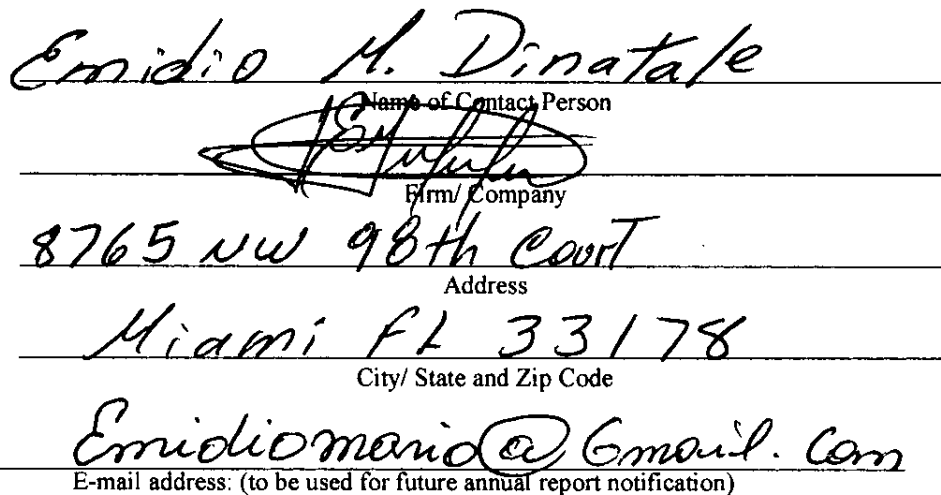 Emidio M. Dinatale
Name of Contact Person
Firm/ Company
8765 NW 98th Court
Address
Miami FL 33178
City/ State and Zip Code
Emidiomario@Gmail.com
E-mail address: (to be used for future annual report notification)